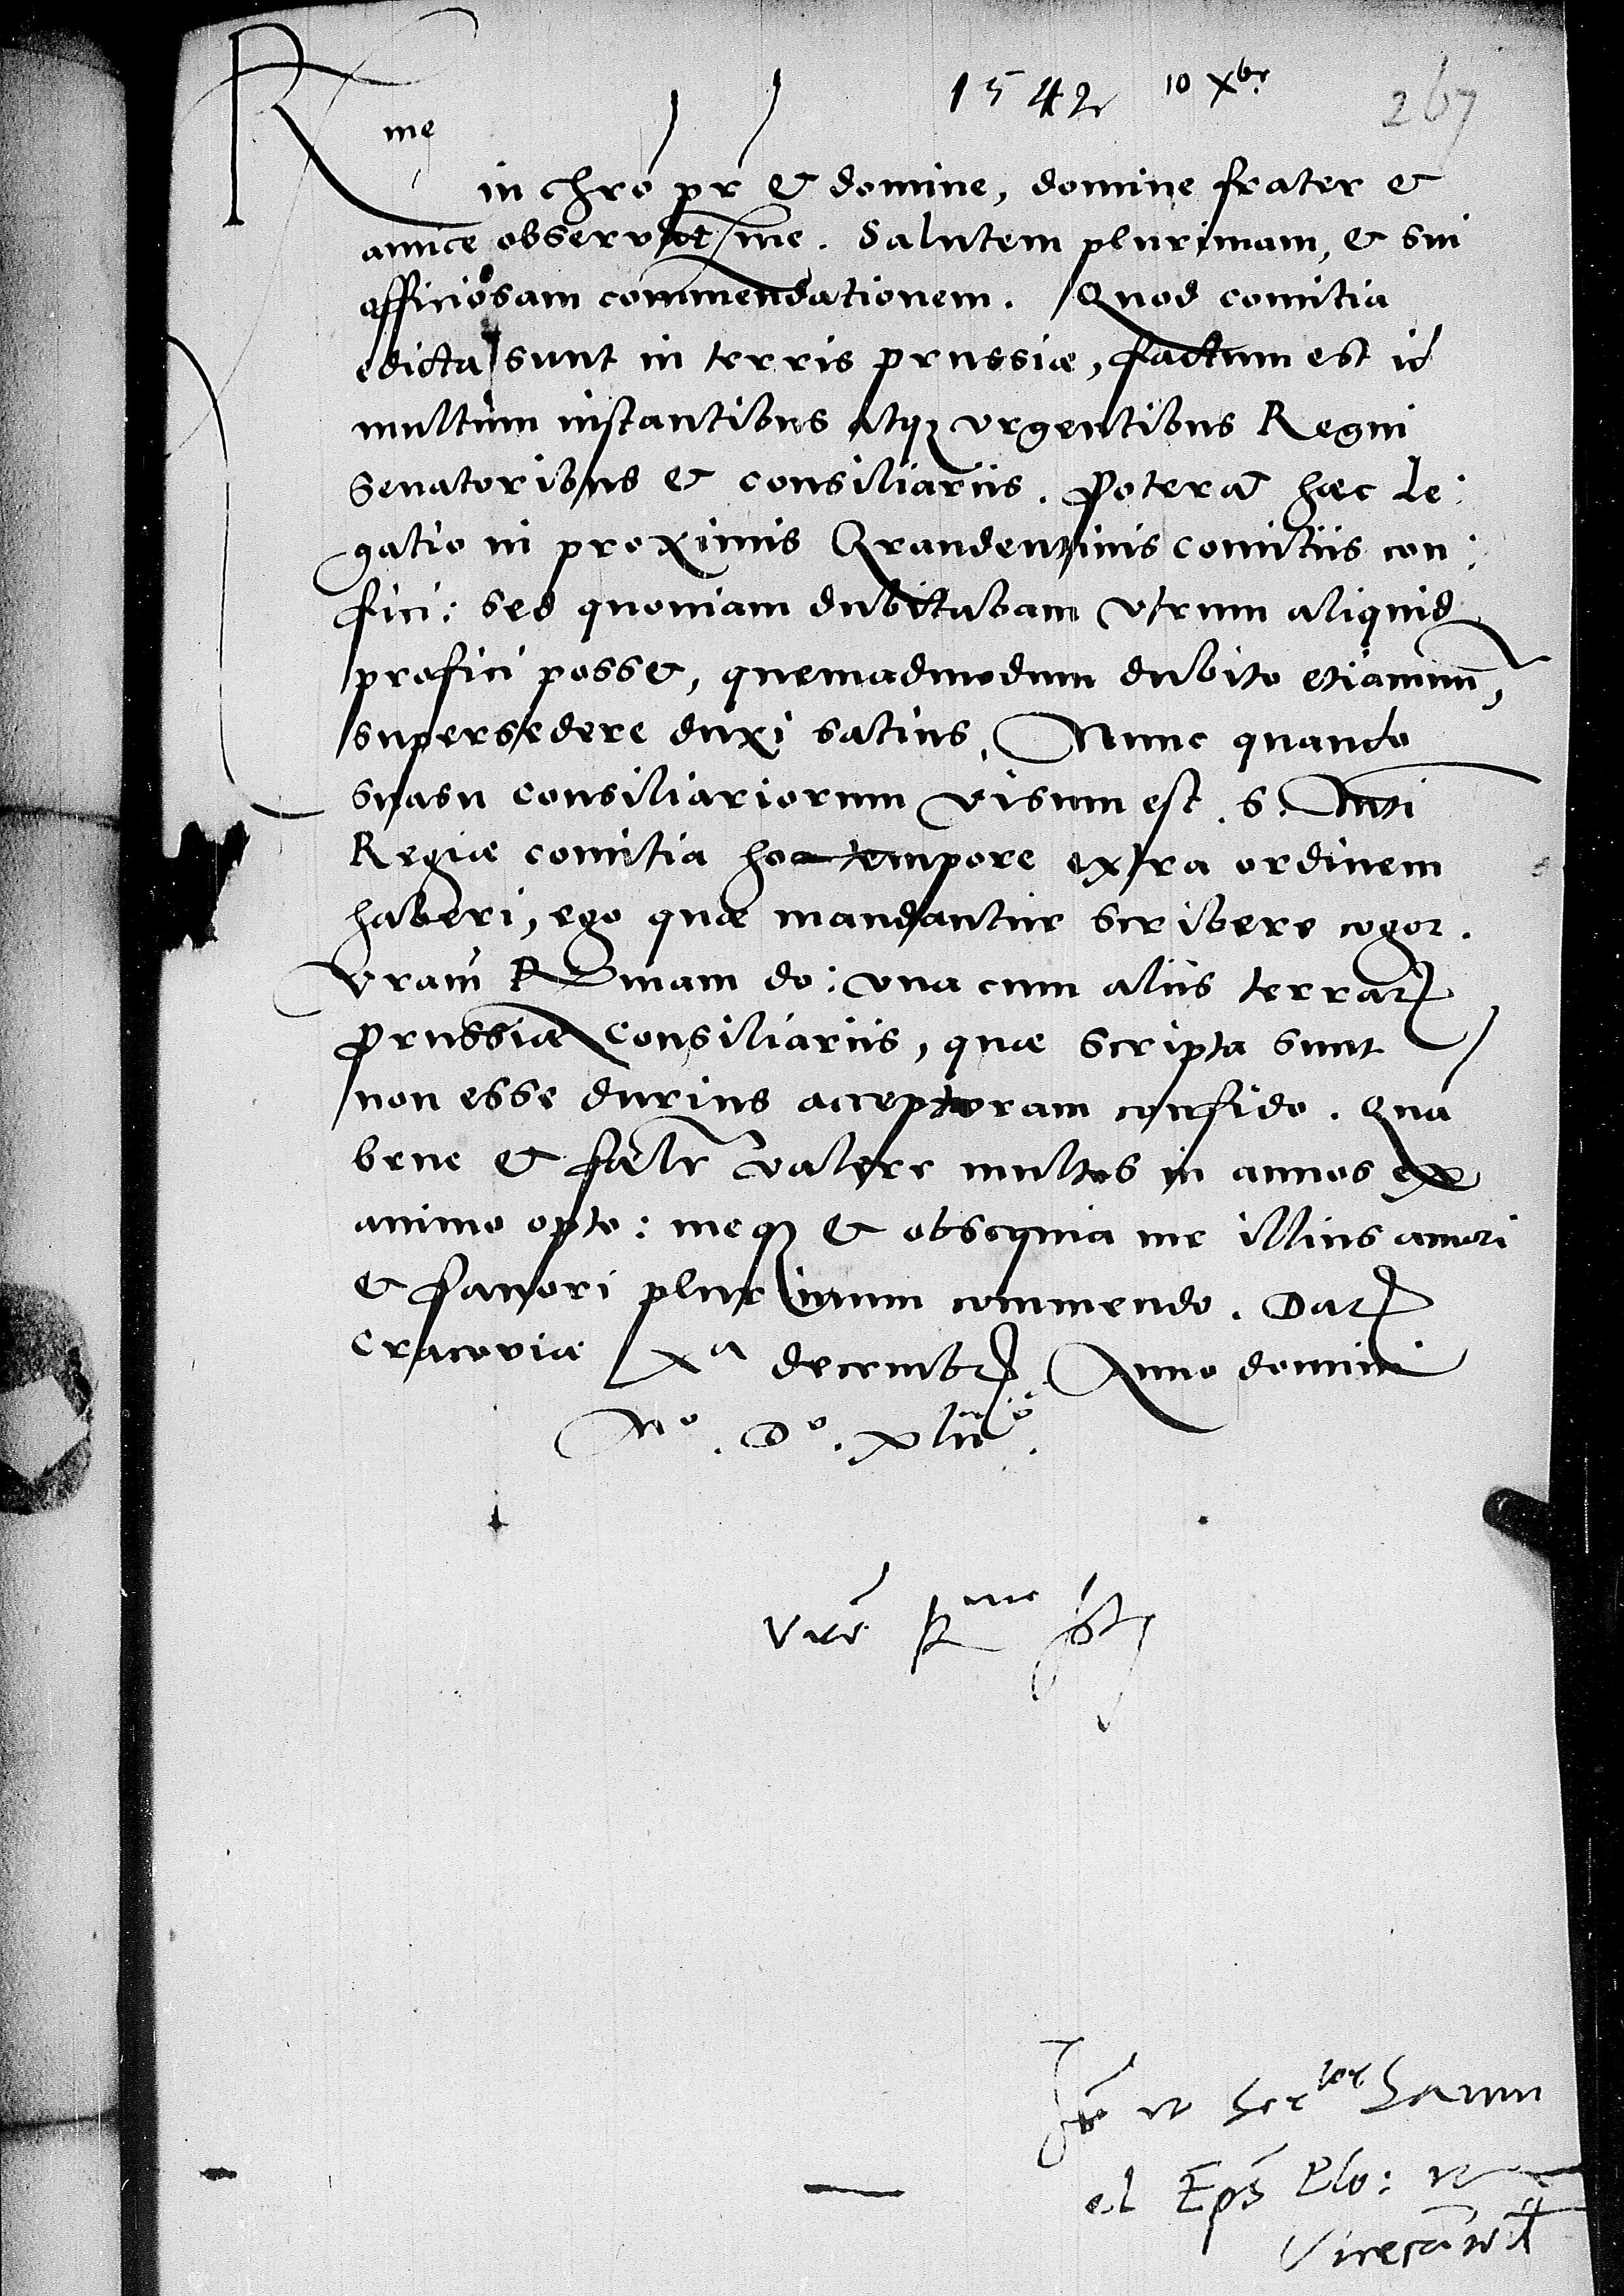 1542 10 Xbr
267
Rme
in chro pr & domine, domine frater &
amice observatme. Salutem plurimam, & sui
officiosam commendationem. Quod comitia
edicta sunt in terris prussiæ, factum est id
multum instantibus atq; urgentibus Regni
Senatoribus & consiliariis. Poterat hæc Le:
gatio in proximis Grandenzinis comitiis con:
fici: sed quoniam dubitabam utrum aliquid
profici posset, quemadmodum dubito etiamnū,
supersedere duxi satius. Nunc quando
suasu consiliariorum visum est S. Mti
Regiæ comitia hoc tempore extra ordinem
haberi, ego quæ mandantur scribere cogor.
Vram R D mam do: una cum aliis terrar
Prussiæ consiliariis, quæ scripta sunt
non esse durius accepturam confido. Qua
bene & fælr valere multos in annos ex
animo opto: meq; & obsequia me illius amori
& favori plurimum commendo. Dat
Cracoviæ Xa decembr Anno domini
Mo. Do. xlii o.
Vre Rme
Sam
el Eps Plo: et